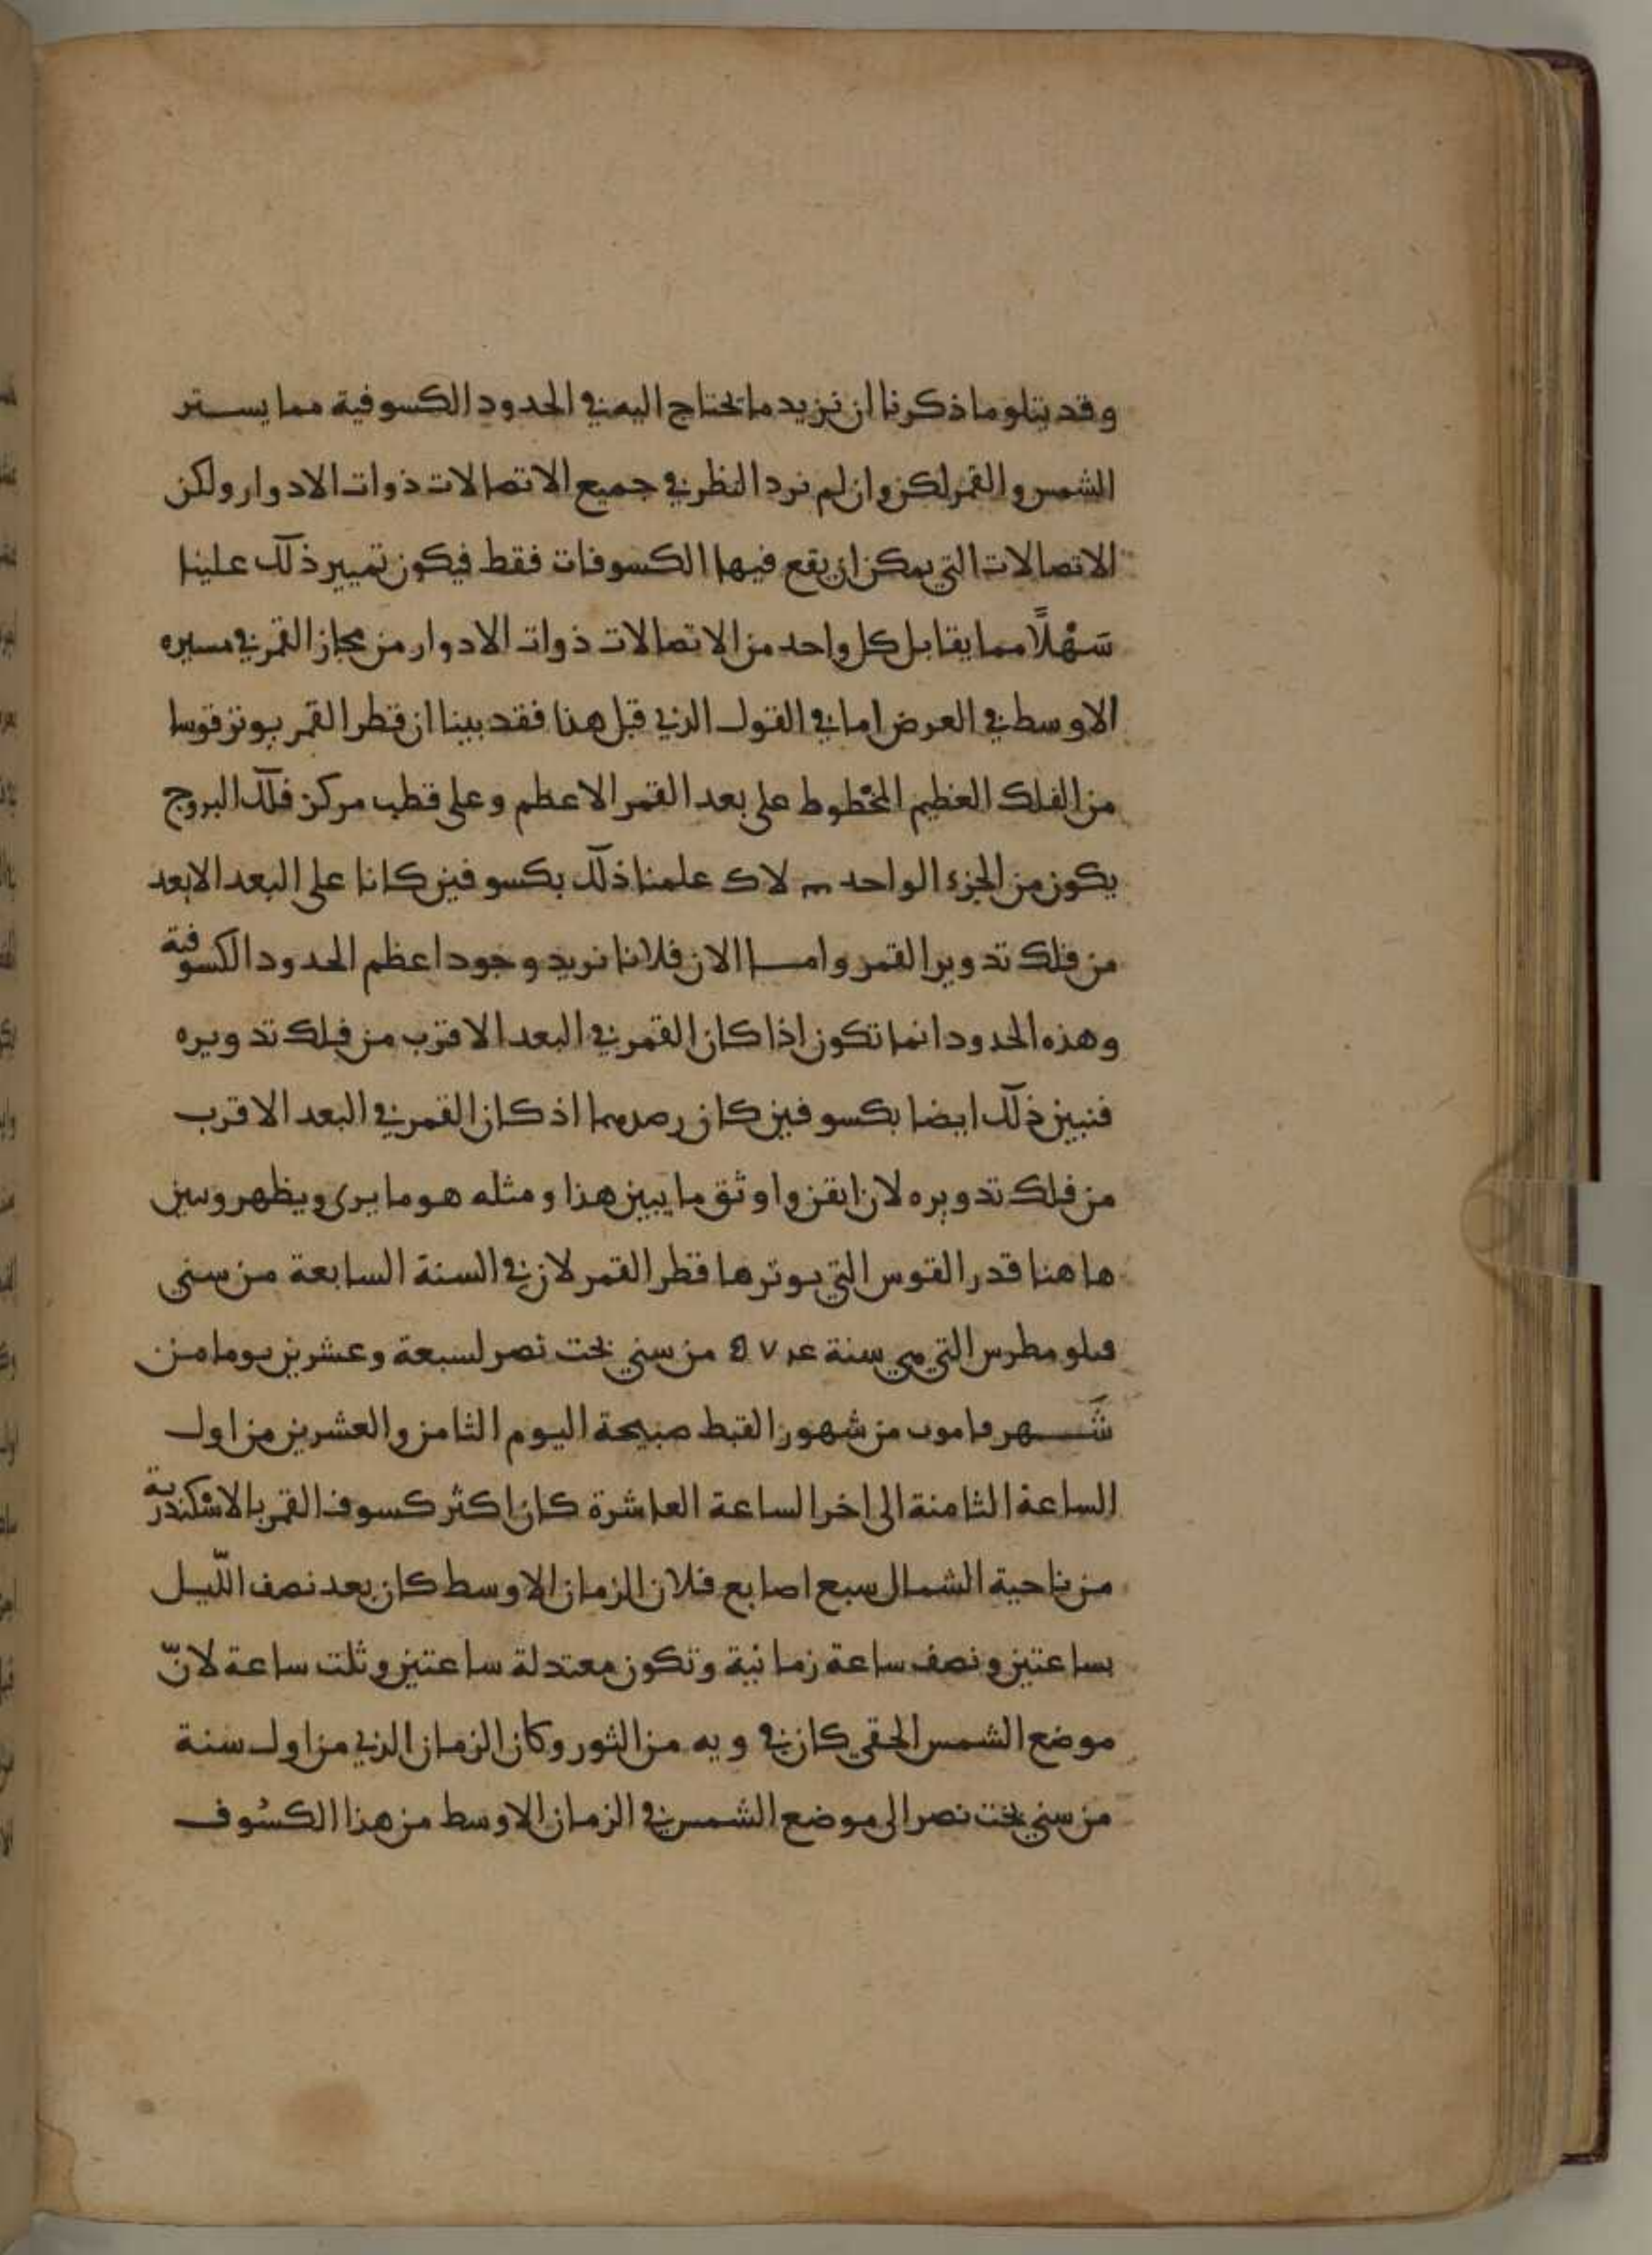 وقد يتلو ما ذكرنا ان نزيد ما نحتاج اليه في الحدود الكسوفية مما يستر
الشمس والقمر لكن وان لم نرد النظر في جميع الاتصالات ذوات الادوار ولكن
الاتصالات التي يمكن ان يقع فيها الكسوفات فقط فيكون تمييز ذلك علينا
سَهْلًا مما يقابل كل واحد من الاتصالات ذوات الادوار من مجاز القمر في مسيره
الاوسط في العرض اما في القول الذي قبل هذا فقد بينا ان قطر القمر يوتر قوسا
من الفلك العظيم المخطوط على بعد القمر الاعظم وعلى قطب مركز فلك البروج
يكون من الجزء الواحد لاك علمنا ذلك بكسوفين كانا على البعد الابعد
من فلك تدوير القمر واما الان فلانا نريد وجود اعظم الحدود الكسوفية
وهذه الحدود انما تكون اذا كان القمر في البعد الاقرب من فلك تدويره
فنبين ذلك ايضا بكسوفين كان رصدهما اذ كان القمر في البعد الاقرب
من فلك تدويره لان اتقن واوثق ما يبين هذا ومثله هو ما يرى ويظهر وسين
ها هنا قدر القوس التي يوترها قطر القمر لان في السنة السابعة من سني
فيلومطرس التي هي سنة ٥٧٤ من سني بخت نصر لسبعة وعشرين يوما من
شَهر فاموب من شهور القبط صبيحة اليوم الثامن والعشرين من اول
الساعة الثامنة الى اخر الساعة العاشرة كان اكثر كسوف القمر بالاسكندرية
من ناحية الشمال سبع اصابع فلان الزمان الاوسط كان بعد نصف اللّيل
بساعتين ونصف ساعة زمانية وتكون معتدلة ساعتين وثلث ساعة لانّ
موضع الشمس الحقي كان في و يه من الثور وكان الزمان الذي من اول سنة
من سني بخت نصر الى موضع الشمس في الزمان الاوسط من هذا الكسُوف